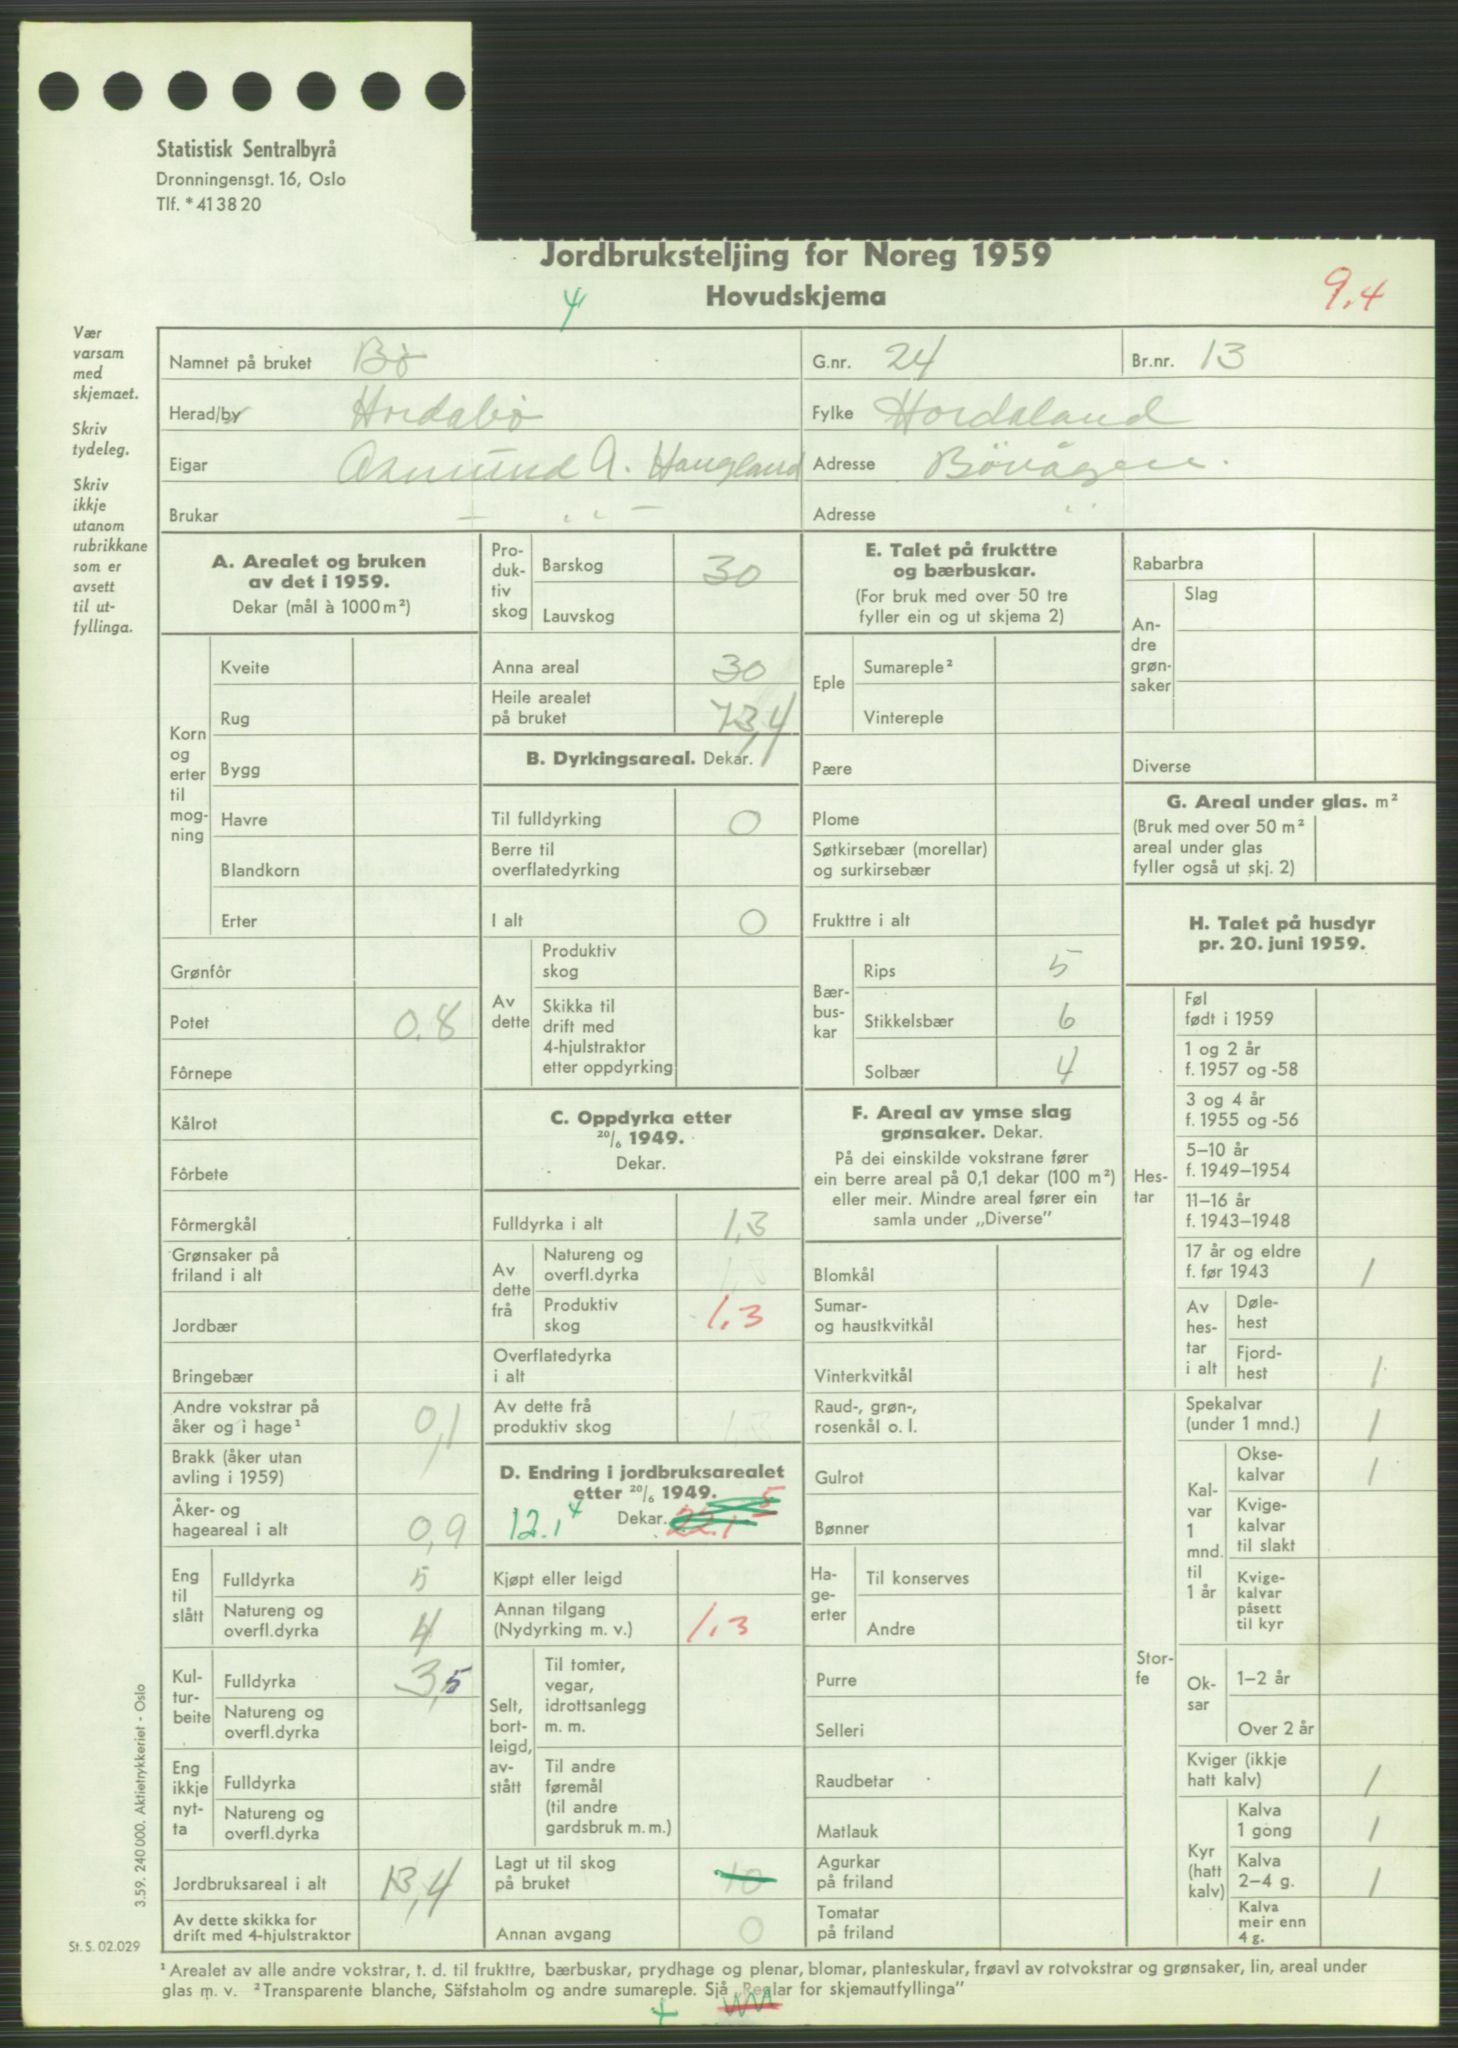 Statistisk Sentralbyrå
Dronningensgt. 16, Oslo
Tlf. * 41 38 20
Jordbruksteljing for Noreg 1959
Hovudskjema
4
9.4
Vær
varsam
med
skjemaet.
Skriv
tydeleg.
Skriv
ikkje
utanom
rubrikkane
som er
avsett
til ut-
fyllinga.
Namnet på bruket Bø G.nr. 24 Br.nr. 13
Herad/by Hordabø Fylke Hordaland
Eigar Asmund A. Haugland Adresse Bövågen.
Brukar — „ — Adresse „
A. Arealet og bruken
av det i 1959.
Dekar (mål à 1000 m²)
Korn
og
erter
til
mog-
ning
Kveite
Rug
Bygg
Havre
Blandkorn
Erter
Grønfôr
Potet 0.8
Fôrnepe
Kålrot
Fôrbete
Fôrmergkål
Grønsaker på
friland i alt
Jordbær
Bringebær
Andre vokstrar på
åker og i hage¹ 0,1
Brakk (åker utan
avling i 1959)
Åker- og
hageareal i alt 0,9
Eng
til
slått
Fulldyrka 5
Natureng og
overfl.dyrka 4
Kul-
tur-
beite
Fulldyrka 3,5
Natureng og
overfl.dyrka
Eng
ikkje
nyt-
ta
Fulldyrka
Natureng og
overfl.dyrka
Jordbruksareal i alt 13,4
Av dette skikka for
drift med 4-hjulstraktor
Pro-
duk-
tiv
skog
Barskog 30
Lauvskog
Anna areal 30
Heile arealet
på bruket 73,4
B. Dyrkingsareal. Dekar.
Til fulldyrking 0
Berre til
overflatedyrking
I alt 0
Av
dette
Produktiv
skog
Skikka til
drift med
4-hjulstraktor
etter oppdyrking
C. Oppdyrka etter
20/6 1949.
Dekar.
Fulldyrka i alt 1,3
Av
dette
frå
Natureng og
overfl.dyrka 1,3
Produktiv
skog 1,3
Overflatedyrka
i alt
Av dette frå
produktiv skog 1,3
D. Endring i jordbruksarealet
etter 20/6 1949.
Dekar.
12.1 4 22.1 5
Kjøpt eller leigd
Annan tilgang
(Nydyrking m. v.) 1,3
Selt,
bort-
leigd,
av-
stått
Til tomter,
vegar,
idrottsanlegg
m. m.
Til andre
føremål
(til andre
gardsbruk m. m.)
Lagt ut til skog
på bruket 10
Annan avgang 0
E. Talet på frukttre
og bærbuskar.
(For bruk med over 50 tre
fyller ein og ut skjema 2)
Eple
Sumareple²
Vintereple
Pære
Plome
Søtkirsebær (morellar)
og surkirsebær
Frukttre i alt
Bær-
bus-
kar
Rips 5
Stikkelsbær 6
Solbær 4
F. Areal av ymse slag
grønsaker. Dekar.
På dei einskilde vokstrane fører
ein berre areal på 0,1 dekar (100 m²)
eller meir. Mindre areal fører ein
samla under „Diverse”
Blomkål
Sumar-
og haustkvitkål
Vinterkvitkål
Raud-, grøn-,
rosenkål o. l.
Gulrot
Bønner
Ha-
ge-
erter
Til konserves
Andre
Purre
Selleri
Raudbetar
Matlauk
Agurkar
på friland
Tomatar
på friland
Rabarbra
An-
dre
grøn-
saker
Slag
Diverse
G. Areal under glas. m²
(Bruk med over 50 m²
areal under glas
fyller også ut skj. 2)
H. Talet på husdyr
pr. 20. juni 1959.
Hes-
tar
Føl
født i 1959
1 og 2 år
f. 1957 og -58
3 og 4 år
f. 1955 og -56
5–10 år
f. 1949–1954
11–16 år
f. 1943–1948
17 år og eldre
f. før 1943 1
Av
hes-
tar
i alt
Døle-
hest
Fjord-
hest 1
Stor-
fe
Spekalvar
(under 1 mnd.) 1
Kal-
var
1
mnd.
til
1 år
Okse-
kalvar 1
Kvige-
kalvar
til slakt
Kvige-
kalvar
påsett
til kyr
Ok-
sar
1–2 år
Over 2 år
Kviger (ikkje
hatt kalv) 1
Kyr
(hatt
kalv)
Kalva
1 gong 1
Kalva
2–4 g. 1
Kalva
meir enn
4 g.
3.59. 240 000. Aktietrykkeriet - Oslo
St. S. 02.029
¹ Arealet av alle andre vokstrar, t. d. til frukttre, bærbuskar, prydhage og plenar, blomar, planteskular, frøavl av rotvokstrar og grønsaker, lin, areal under
glas m. v. ² Transparente blanche, Säfstaholm og andre sumareple. Sjå „Reglar for skjemautfyllinga”